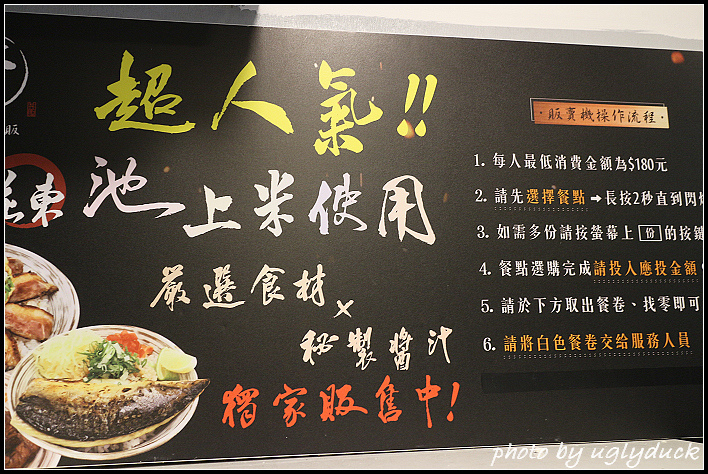 超人氣!!
東 池上米使用
嚴選食材
×
秘製醬汁
獨家販售中!
販
·販賣機操作流程·
1. 每人最低消費金額為$180元
2. 請先選擇餐點➡長按2秒直到閃
3. 如需多份請按螢幕上 份 的按鍵
4. 餐點選購完成請投入應投金額
5. 請於下方取出餐卷、找零即可
6. 請將白色餐卷交給服務人員
photo by uglyduck